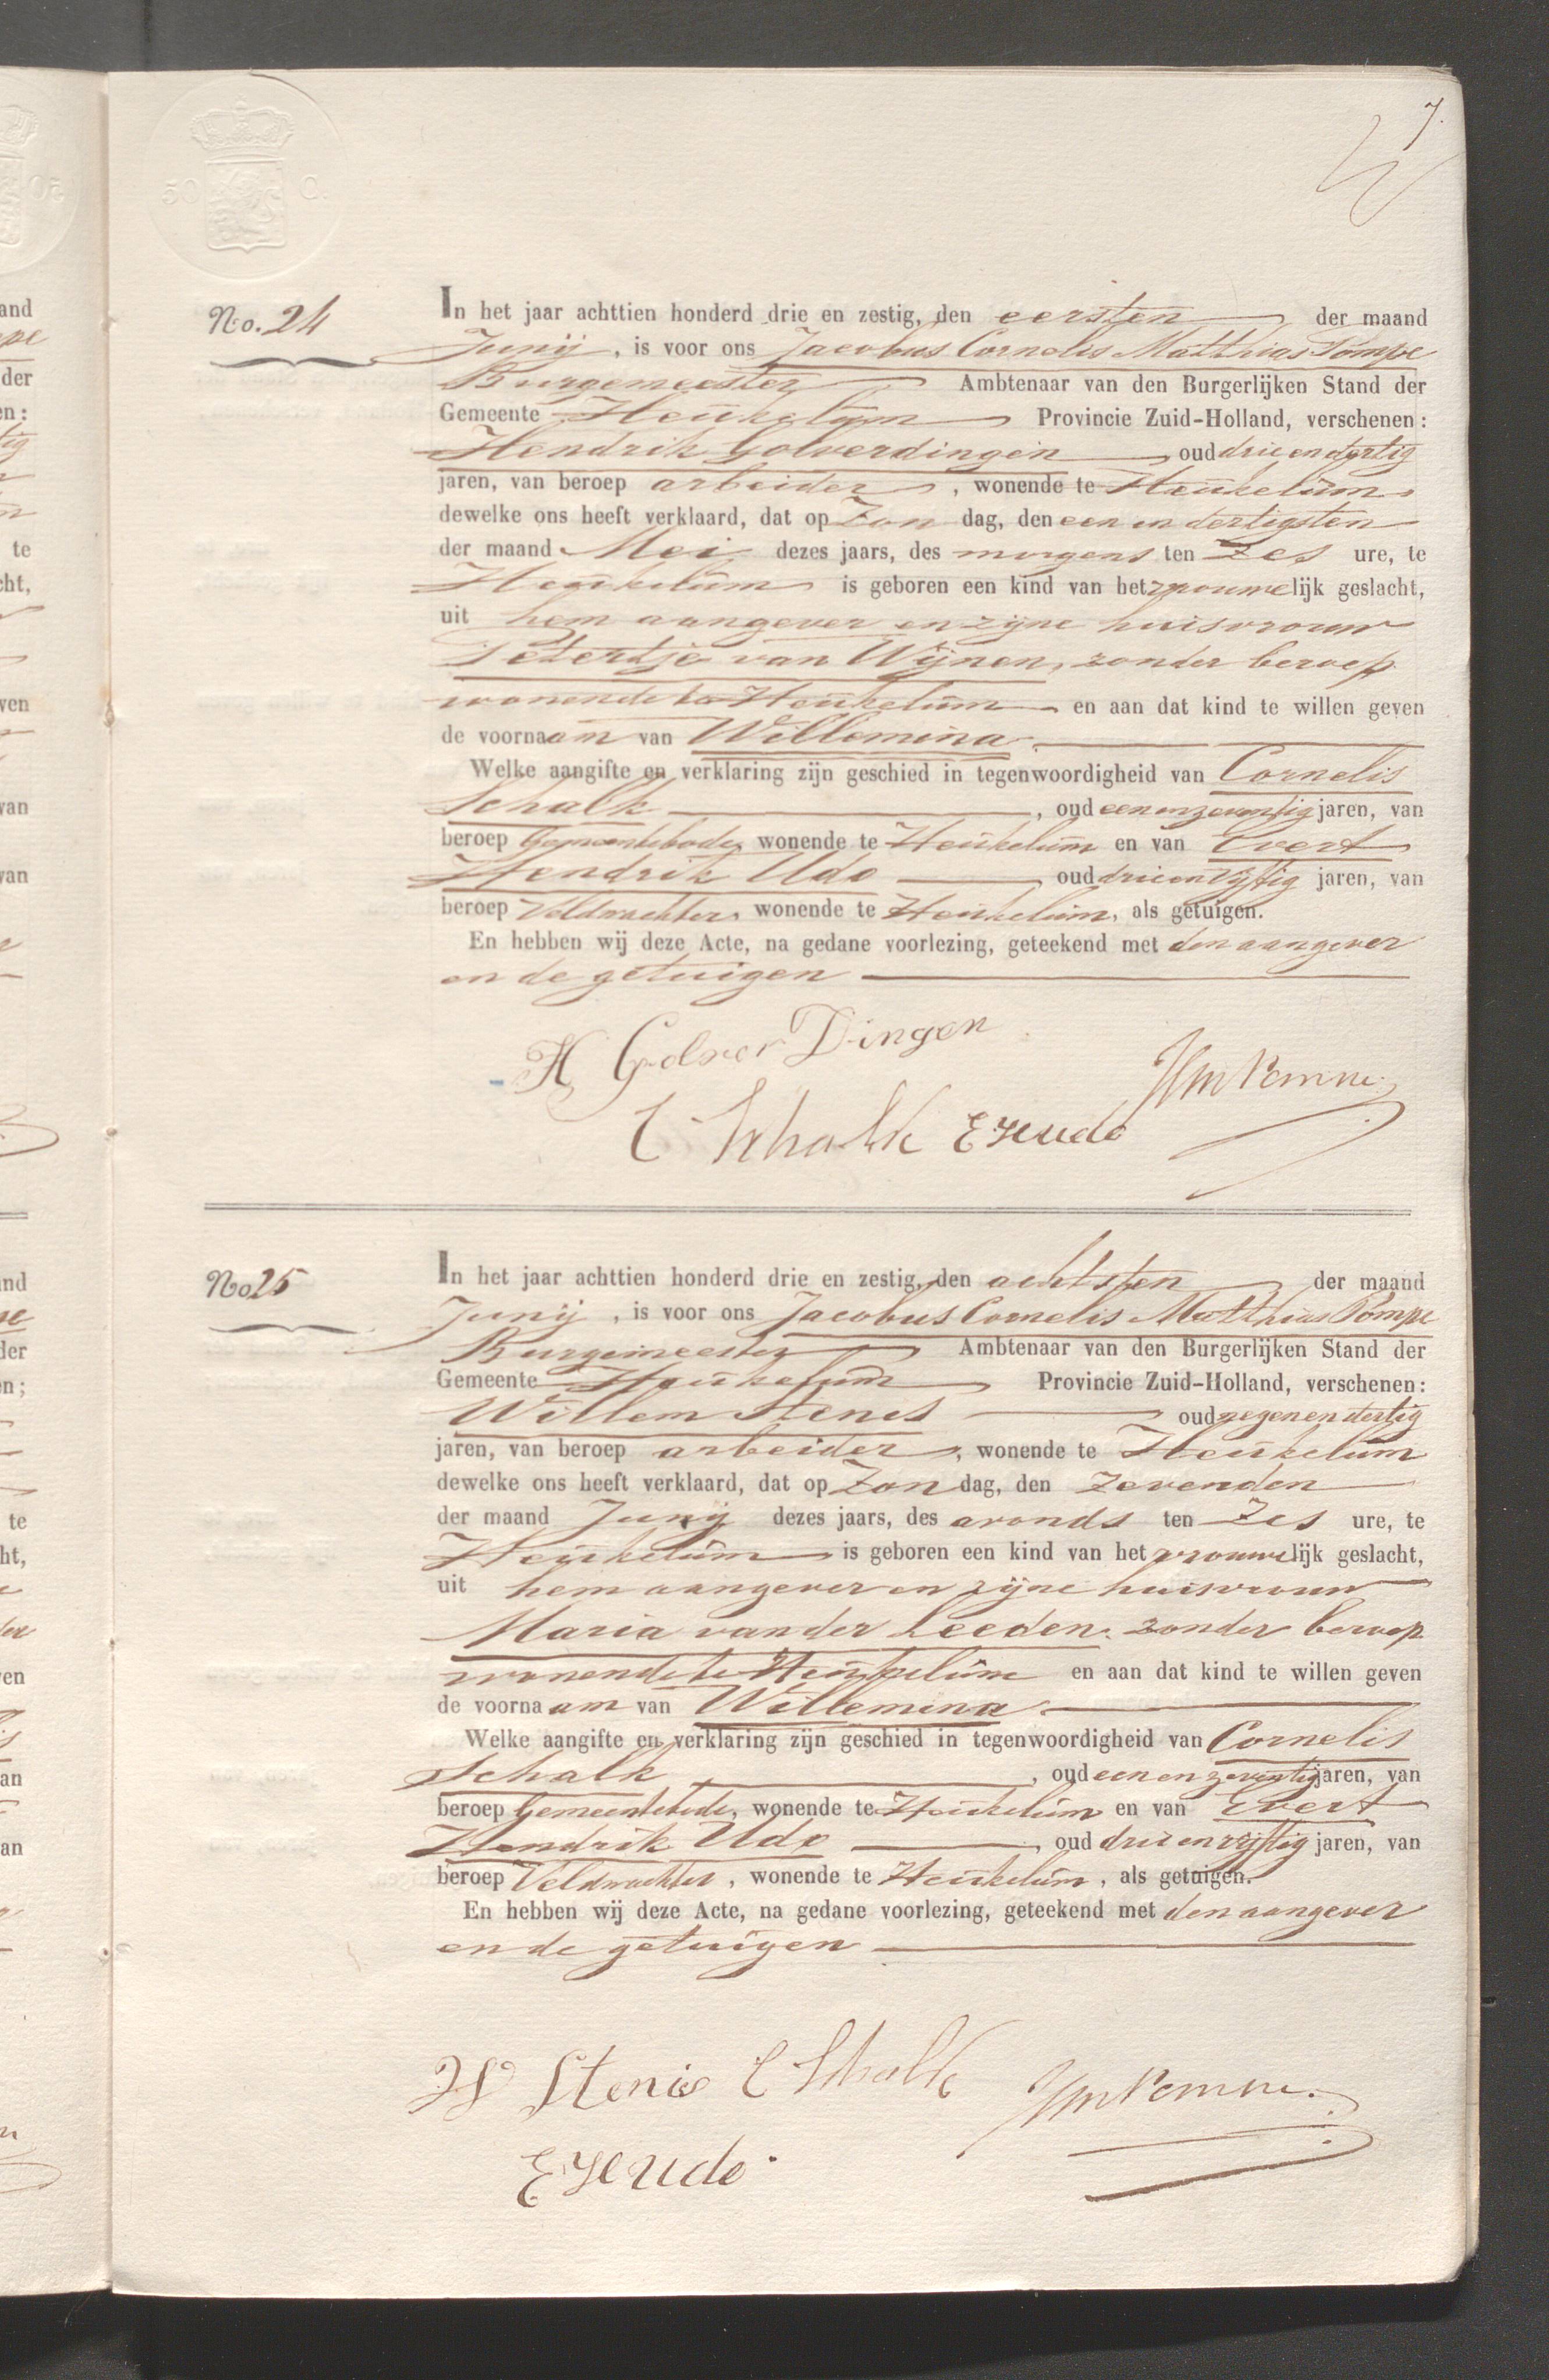 7.
50 C.
No. 24
In het jaar achttien honderd drie en zestig, den eersten der maand
Junij, is voor ons Jacobus Cornelis Matthias Pompe
Burgemeester Ambtenaar van den Burgerlijken Stand der
Gemeente Heukelum Provincie Zuid-Holland, verschenen:
Hendrik Golverdingen oud drie en dertig
jaren, van beroep arbeider, wonende te Heukelum
dewelke ons heeft verklaard, dat op Zon dag, den een en dertigsten
der maand Mei dezes jaars, des morgens ten Zes ure, te
Heukelum is geboren een kind van het vrouwelijk geslacht,
uit hem aangever en zijne huisvrouw
Petertje van Wijnen, zonder beroep
wonende te Heukelum en aan dat kind te willen geven
de voornaam van Willemina
Welke aangifte en verklaring zijn geschied in tegenwoordigheid van Cornelis
Schalk, oud een en zeventig jaren, van
beroep Gemeentebode, wonende te Heukelum en van Evert
Hendrik Udo oud drie en vijftig jaren, van
beroep Veldwachter, wonende te Heukelum, als getuigen.
En hebben wij deze Acte, na gedane voorlezing, geteekend met den aangever
en de getuigen
H GolverDingen
C Schalk EHUdo
No 25
In het jaar achttien honderd drie en zestig, den achtsten der maand
Junij, is voor ons Jacobus Cornelis Matthias Pompe
Burgemeester Ambtenaar van den Burgerlijken Stand der
Gemeente Heukelum Provincie Zuid-Holland, verschenen:
Willem Stenis oud negen en dertig
jaren, van beroep arbeider, wonende te Heukelum
dewelke ons heeft verklaard, dat op Zon dag, den Zevenden
der maand Junij dezes jaars, des avonds ten Zes ure, te
Heukelum is geboren een kind van het vrouwelijk geslacht,
uit hem aangever en zijne huisvrouw
Maria van der Leeden, zonder beroep
wonende te Heukelum en aan dat kind te willen geven
de voornaam van Willemina
Welke aangifte en verklaring zijn geschied in tegenwoordigheid van Cornelis
Schalk, oud een en zeventig jaren, van
beroep Gemeentebode, wonende te Heukelum en van Evert
Hendrik Udo oud drie en vijftig jaren, van
beroep Veldwachter, wonende te Heukelum, als getuigen.
En hebben wij deze Acte, na gedane voorlezing, geteekend met den aangever
en de getuigen
W Stenis C Schalk
EHUdo